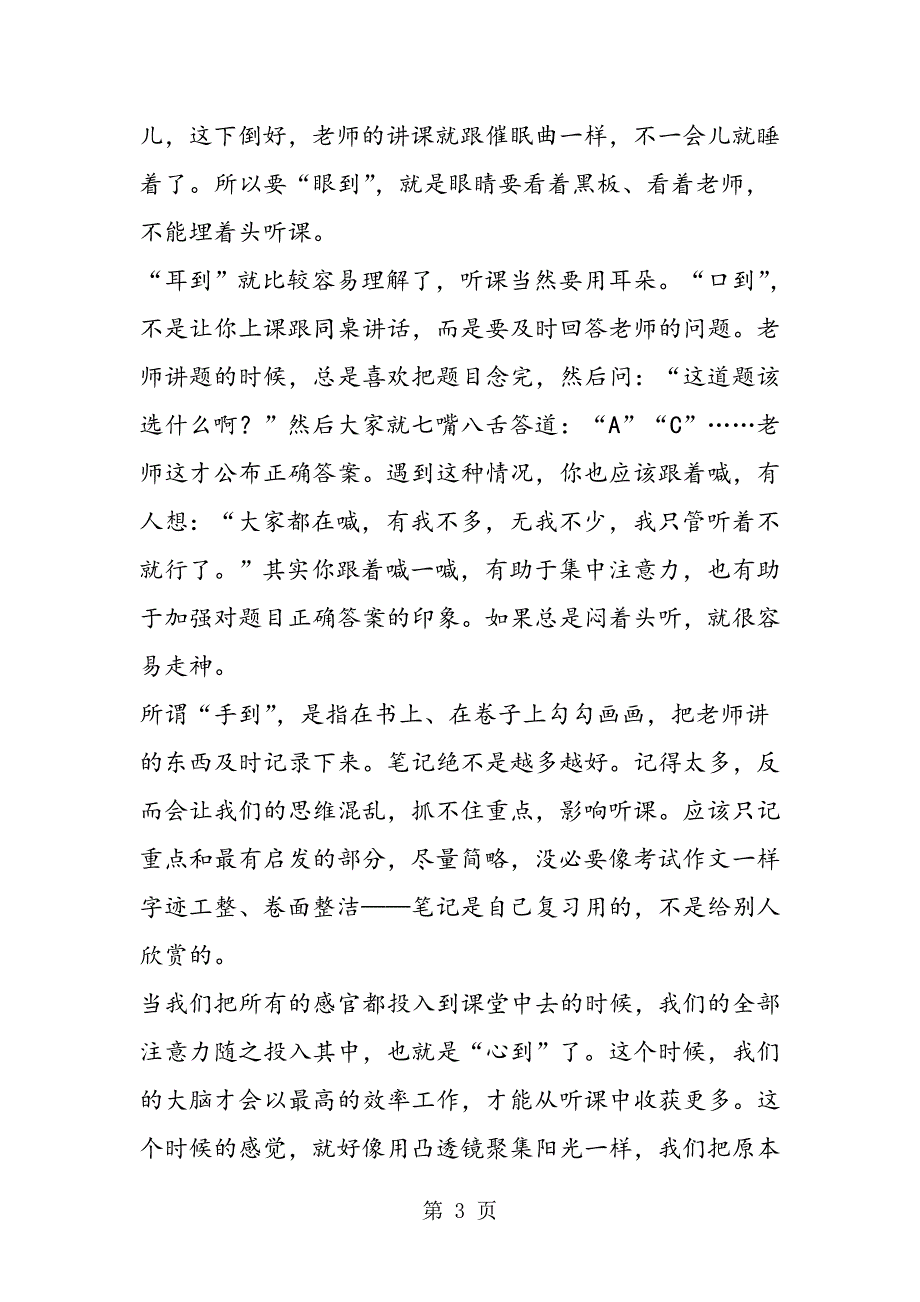 儿，这下倒好，老师的讲课就跟催眠曲一样，不一会儿就睡
着了。所以要“眼到”，就是眼睛要看着黑板、看着老师，
不能埋着头听课。
“耳到”就比较容易理解了，听课当然要用耳朵。“口到”，
不是让你上课跟同桌讲话，而是要及时回答老师的问题。老
师讲题的时候，总是喜欢把题目念完，然后问：“这道题该
选什么啊？”然后大家就七嘴八舌答道：“A”“C”……老
师这才公布正确答案。遇到这种情况，你也应该跟着喊，有
人想：“大家都在喊，有我不多，无我不少，我只管听着不
就行了。”其实你跟着喊一喊，有助于集中注意力，也有助
于加强对题目正确答案的印象。如果总是闷着头听，就很容
易走神。
所谓“手到”，是指在书上、在卷子上勾勾画画，把老师讲
的东西及时记录下来。笔记绝不是越多越好。记得太多，反
而会让我们的思维混乱，抓不住重点，影响听课。应该只记
重点和最有启发的部分，尽量简略，没必要像考试作文一样
字迹工整、卷面整洁——笔记是自己复习用的，不是给别人
欣赏的。
当我们把所有的感官都投入到课堂中去的时候，我们的全部
注意力随之投入其中，也就是“心到”了。这个时候，我们
的大脑才会以最高的效率工作，才能从听课中收获更多。这
个时候的感觉，就好像用凸透镜聚集阳光一样，我们把原本
第 3 页